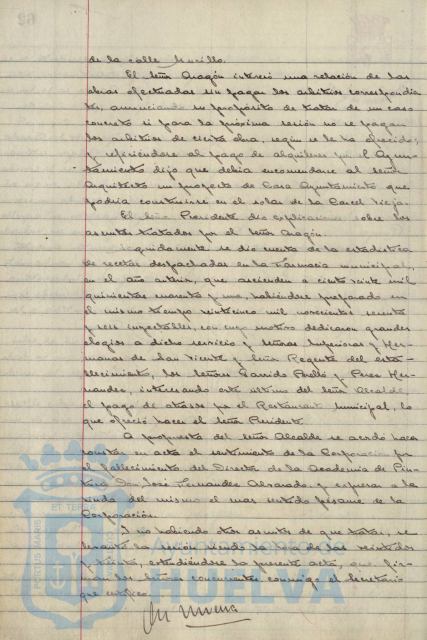 de la calle Murillo.
El Señor Aragón interesó una relación de las
obras efectuadas sin pagar los arbitrios correspondien
tes, anunciando su propósito de tratar de un caso
concreto si para la próxima sesión no se pagan
los arbitrios de cierta obra, según se le ha ofrecido;
y refiriéndose al pago de alquileres por el Ayun-
tamiento dijo que debía encomendarse al señor
Arquitecto un proyecto de Casa Ayuntamiento que
podría construirse en el solar de la Carcel Vieja.
El Señor Presidente dió explicaciones sobre los
asuntos tratados por el Señor Aragón.
Seguidamente se dió cuenta de la estadística
de recetas despachadas en la Farmacia municipal,
en el año anterior, que ascienden a ciento veinte mil
quinientas noventa y una, habiéndose preparado en
el mismo tiempo veinticinco mil novecientos
y seis inyectables, con cuyo motivo dedicaron grandes
elogios a dicho servicio y Señoras Superiora y Her-
manas de San Vicente y Señor Regente del esta-
blecimiento, los Señores Garrido Perelló y Perez Her-
nandez, interesando este último del señor Alcalde,
el pago de atrasos por el Restaurant municipal, lo
que ofreció hacer el Señor Presidente.
A propuesta del Señor Alcalde se acordó hacer
constar en acta el sentimiento de la Corporación por
el fallecimiento del Director de la Academia de Pin-
tura Don José Fernandez Alvarado y expresar a la
viuda del mismo el mas sentido pésame de la
Corporación.
Y no habiendo otros asuntos de que tratar, se
levantó la sesión siendo la de las veintidos
y treinta, extendiéndose la presente acta, que fir-
man los Señores concurrentes conmigo el Secretario
que certifico.
HUELVA